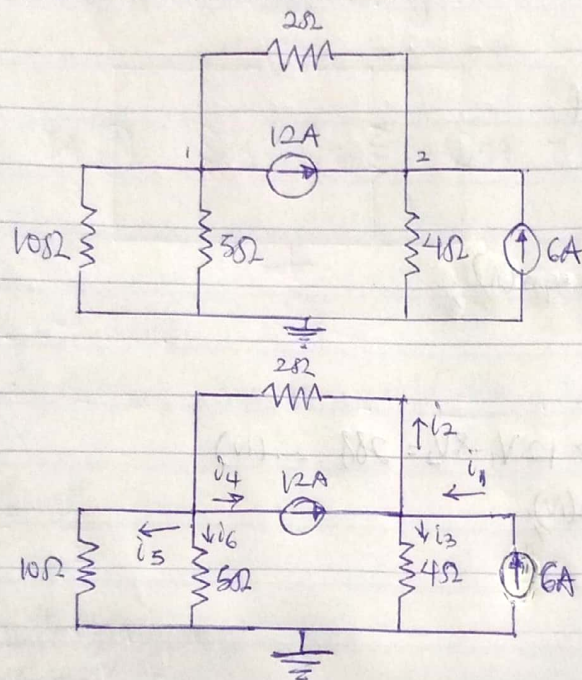 2Ω
12A
1 2
10Ω 5Ω 4Ω 6A
2Ω
i2
i4 12A i1
i5 i6 i3
10Ω 5Ω 4Ω 6A